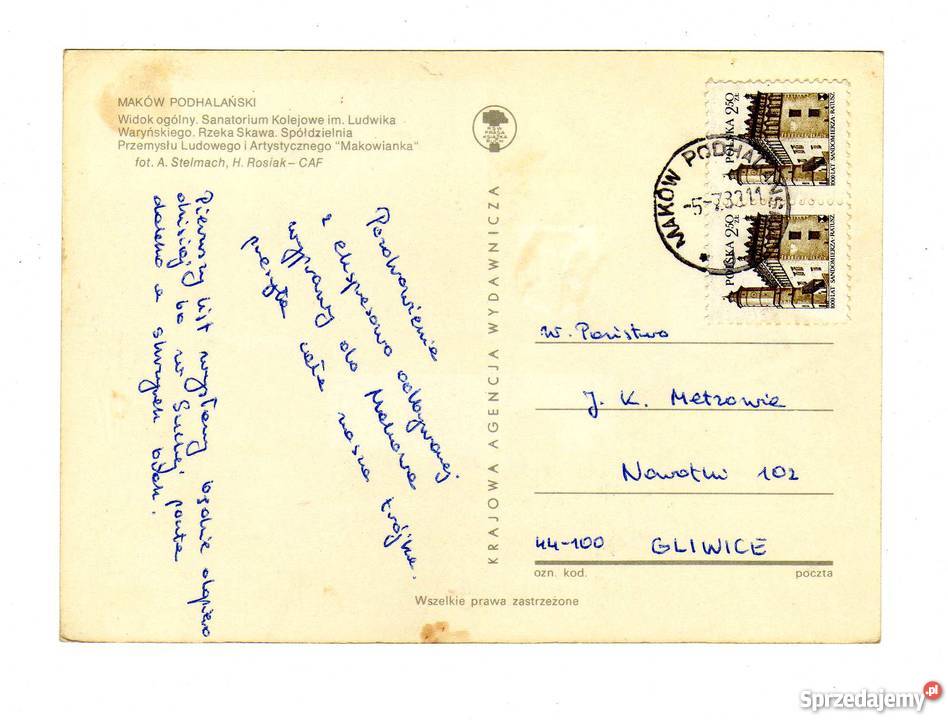 MAKÓW PODHALAŃSKI
Widok ogólny. Sanatorium Kolejowe im. Ludwika
Waryńskiego. Rzeka Skawa. Spółdzielnia
Przemysłu Ludowego i Artystycznego "Makowianka"
fot. A. Stelmach, H. Rosiak – CAF
Pierwszy list wysłany będzie dopiero
dzisiaj, bo w Suchej poczta
daleko a skrzynek brak.
Pozdrowienia
z ekspresowo odbywanej
wyprawy do Makowa
przesyła cała nasza trójka.
KRAJOWA AGENCJA WYDAWNICZA
POLSKA 2,50 ZŁ
1000 LAT SANDOMIERZA-RATUSZ
POLSKA 2,50 ZŁ
1000 LAT SANDOMIERZA-RATUSZ
MAKÓW PODHALAŃSKI
W. Państwo
J. K. Metzowie
Nowotki 102
44-100 GLIWICE
ozn. kod. poczta
Wszelkie prawa zastrzeżone
Sprzedajemy.pl